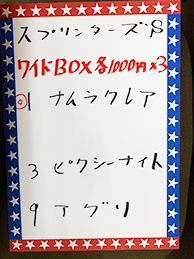 スプリンターズS
ワイドBOX各1000円×3
◎1 ナムラクレア
3 ピクシーナイト
9 アグリ